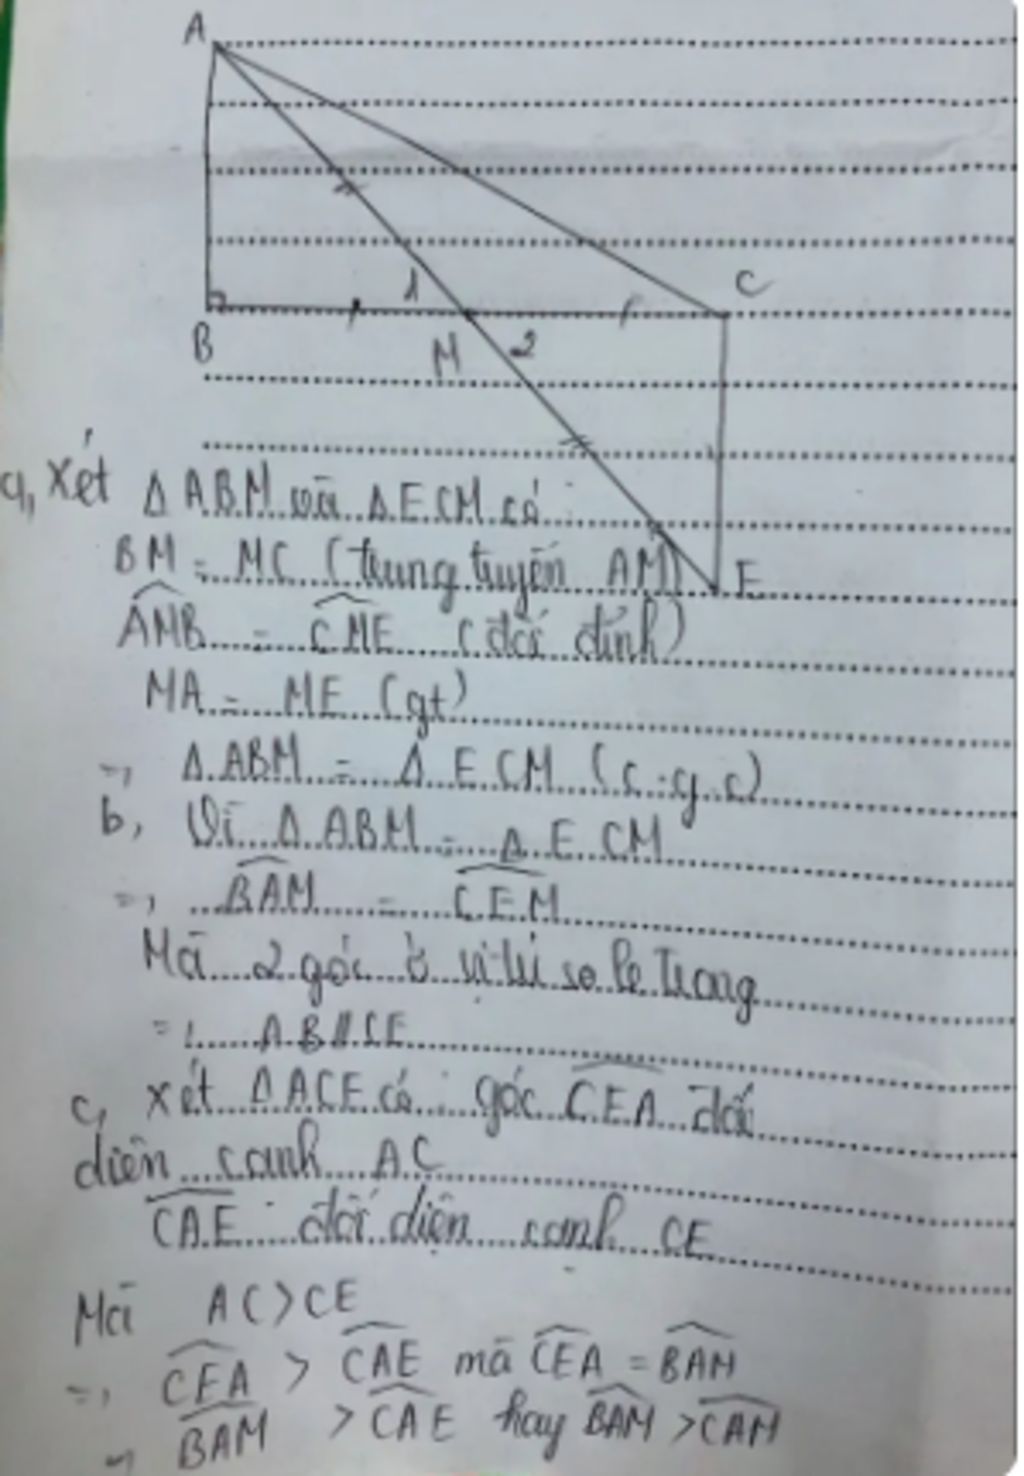 A
C
1
B
M
2
E
a, Xét Δ ABM và Δ ECM có :
BM = MC (trung tuyến AM)
\widehat{AMB} = \widehat{CME} (đối đỉnh)
MA = ME (gt)
=> Δ ABM = Δ ECM (c.g.c)
b, Vì Δ ABM = Δ ECM
=> \widehat{BAM} = \widehat{CEM}
Mà 2 góc ở vị trí so le trong
=> AB // CE
c, Xét Δ ACE có : góc \widehat{CEA} đối
diện cạnh AC
\widehat{CAE} : đối diện cạnh CE
Mà AC > CE
=> \widehat{CEA} > \widehat{CAE} mà \widehat{CEA} = \widehat{BAM}
=> \widehat{BAM} > \widehat{CAE} hay \widehat{BAM} > \widehat{CAM}